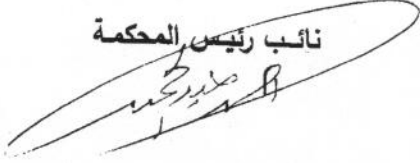 نائب رئيس المحكمة